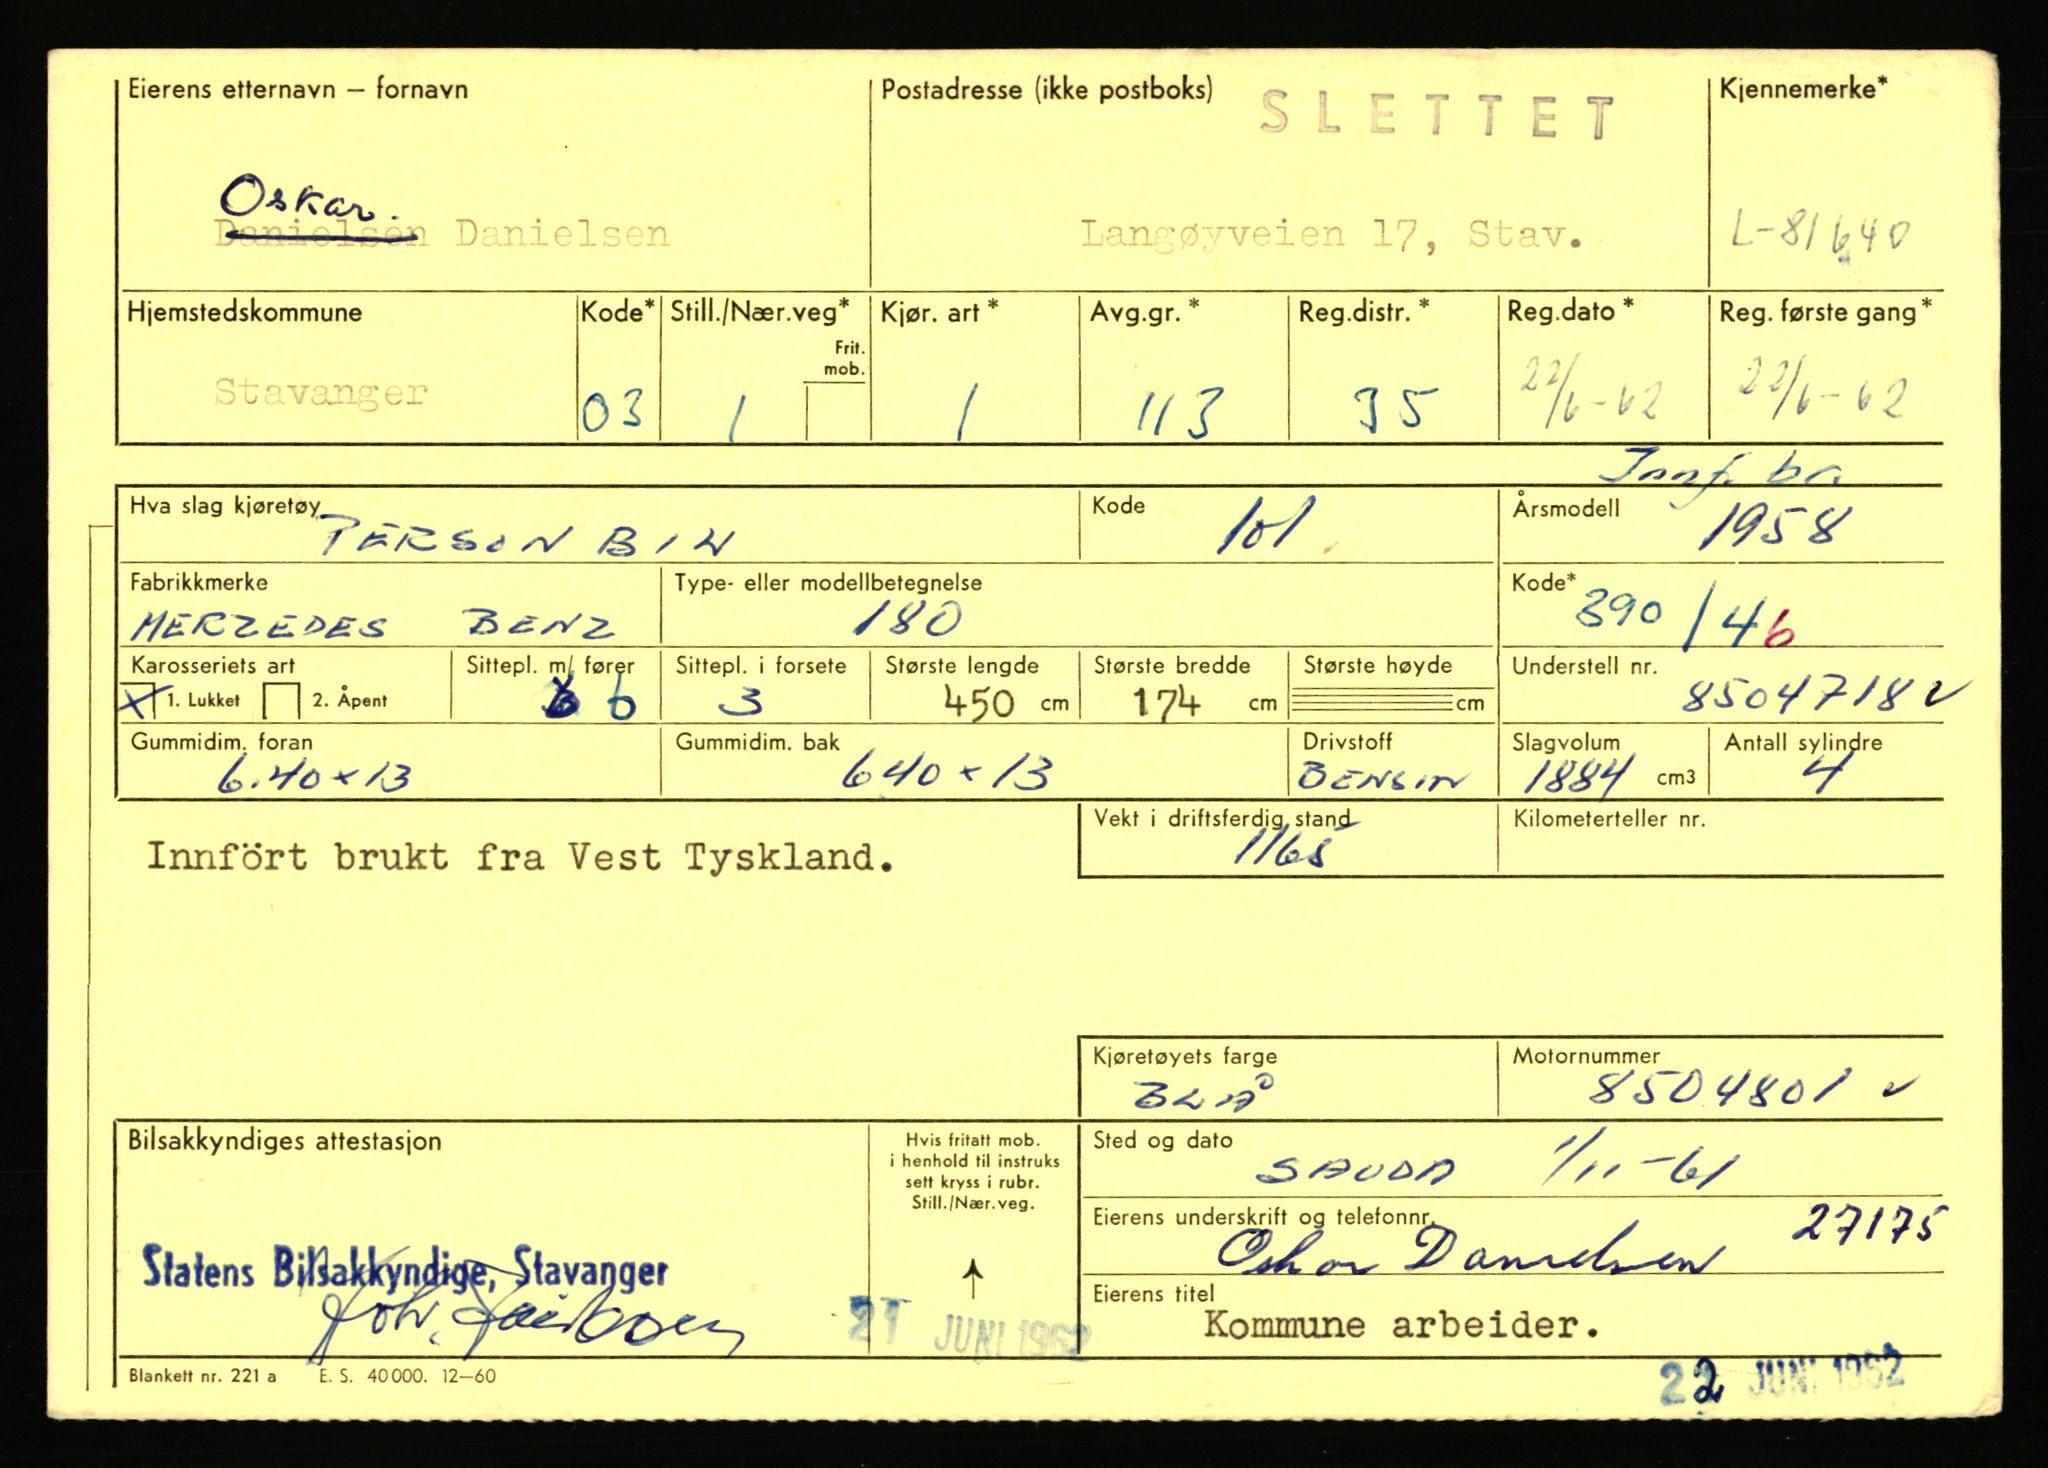 Eierens etternavn – fornavn Postadresse (ikke postboks) SLETTET Kjennemerke*
Oskar.
Danielsen Danielsen Langøyveien 17, Stav. L-81640
Hjemstedskommune Kode* Still./Nær.veg* Kjør. art* Avg.gr.* Reg.distr.* Reg.dato* Reg. første gang*
Frit.
mob.
Stavanger 03 1 1 113 35 22/6-62 22/6-62
Innf. br.
Hva slag kjøretøy Kode Årsmodell
PERSON BIL 101 1958
Fabrikkmerke Type- eller modellbetegnelse Kode*
MERZEDES BENZ 180 390/46
Karosseriets art Sittepl. m/ fører Sittepl. i forsete Største lengde Største bredde Største høyde Understell nr.
X 1. Lukket 2. Åpent 6 3 450 cm 174 cm cm 8504718 v
Gummidim. foran Gummidim. bak Drivstoff Slagvolum Antall sylindre
6.40 x 13 640 x 13 BENSIN 1884 cm3 4
Vekt i driftsferdig stand Kilometerteller nr.
1165
Innfört brukt fra Vest Tyskland.
Kjøretøyets farge Motornummer
BLÅ 8504801 v
Bilsakkyndiges attestasjon Hvis fritatt mob.
i henhold til instruks
sett kryss i rubr.
Still./Nær.veg.
Sted og dato
SAUDA 1/11-61
Eierens underskrift og telefonnr. 27175
Oskar Danielsen
Statens Bilsakkyndige, Stavanger
Eierens titel
Kommune arbeider.
21 JUNI 1962
Blankett nr. 221 a E. S. 40000. 12–60
22 JUNI 1962